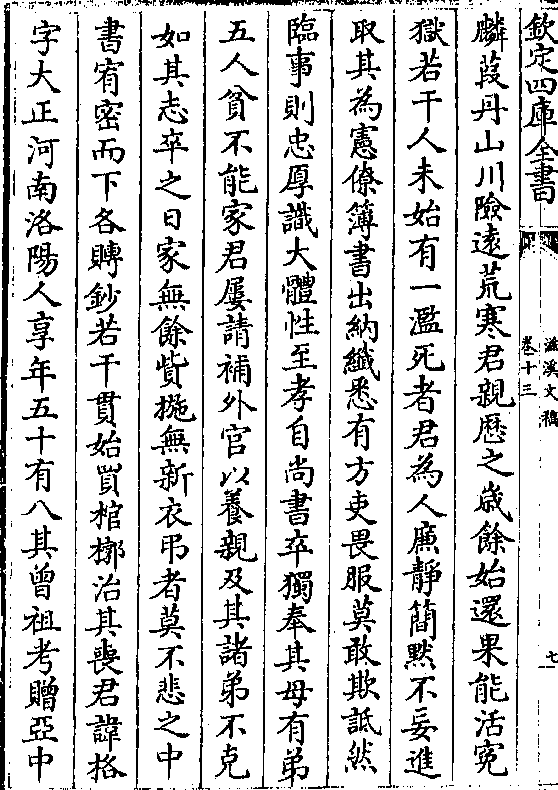 欽定四庫全書
滋溪文稿
卷十三
七
麟葭丹山川險逺荒寒君親歴之嵗餘始還果能活寃
獄若干人未始有一濫死者君為人㢘靜簡黙不妄進
取其為憲僚簿書出納纎悉有方吏畏服莫敢欺詆然
臨事則忠厚識大體性至孝自尚書卒獨奉其母有弟
五人貧不能家君屢請補外官以養親及其諸弟不克
如其志卒之日家無餘貲㧞無新衣弔者莫不悲之中
書宥密而下各賻鈔若干貫始買棺槨治其喪君諱格
字大正河南洛陽人享年五十有八其曽祖考贈亞中